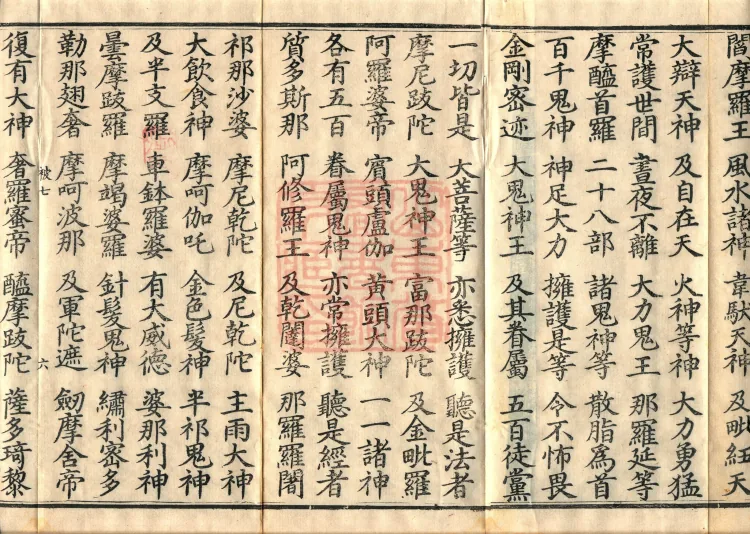 閻摩羅王 風水諸神 韋馱天神 及毗紐天
大辯天神 及自在天 火神等神 大力勇猛
常護世間 晝夜不離 大力鬼王 那羅延等
摩醯首羅 二十八部 諸鬼神等 散脂為首
百千鬼神 神足大力 擁護是等 令不怖畏
金剛密迹 大鬼神王 及其眷屬 五百徒黨
一切皆是 大菩薩等 亦悉擁護 聽是法者
摩尼跋陀 大鬼神王 富那跋陀 及金毗羅
阿羅婆帝 賓頭盧伽 黃頭大神 一一諸神
各有五百 眷屬鬼神 亦常擁護 聽是經者
質多斯那 阿修羅王 及乾闥婆 那羅羅闍
祁那沙婆 摩尼乾陀 及尼乾陀 主雨大神
大飲食神 摩呵伽吒 金色髮神 半祁鬼神
及半支羅 車鉢羅婆 有大威德 婆那利神
曇摩跋羅 摩竭婆羅 針髮鬼神 繡利密多
勒那翅奢 摩呵波那 及軍陀遮 劒摩舍帝
被七 六
復有大神 奢羅密帝 醯摩跋陀 薩多琦黎